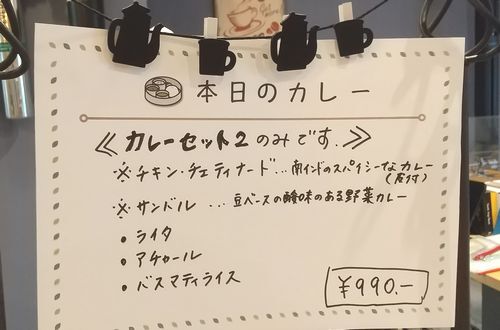 本日のカレー
≪ カレーセット2 のみです. ≫
※ チキン・チェティナード… 南インドのスパイシーなカレー
(骨付)
※ サンバル …豆ベースの酸味のある野菜カレー
• ライタ
• アチャール
• バスマティライス
¥990.-